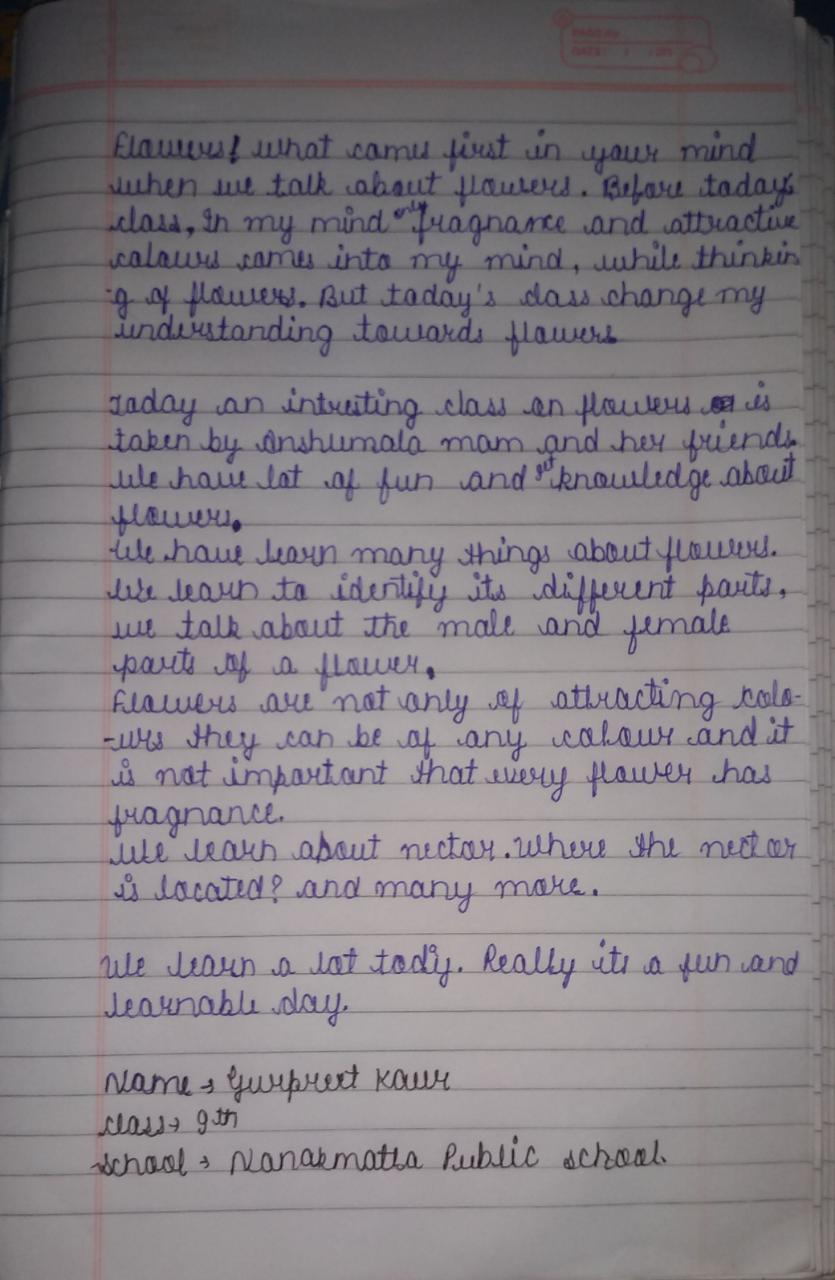 PAGE No
DATE: / /
Flowers! what comes first in your mind
when we talk about flowers. Before today's
class, In my mind only fragnance and attractive
colours comes into my mind, while thinkin
-g of flowers. But today's class change my
understanding towards flowers.
Today an intresting class on flowers is
taken by Anshumala mam and her friends.
We have lot of fun and get knowledge about
flowers.
We have learn many things about flowers.
We learn to identify its different parts,
we talk about the male and female
parts of a flower.
Flowers are not only of attracting colo-
-urs they can be of any colour and it
is not important that every flower has
fragnance.
We learn about nectar. Where the nectar
is located? and many more.
We learn a lot tody. Really its a fun and
learnable day.
Name → Gurpreet Kaur
class → 9th
School → Nanakmatta Public school.